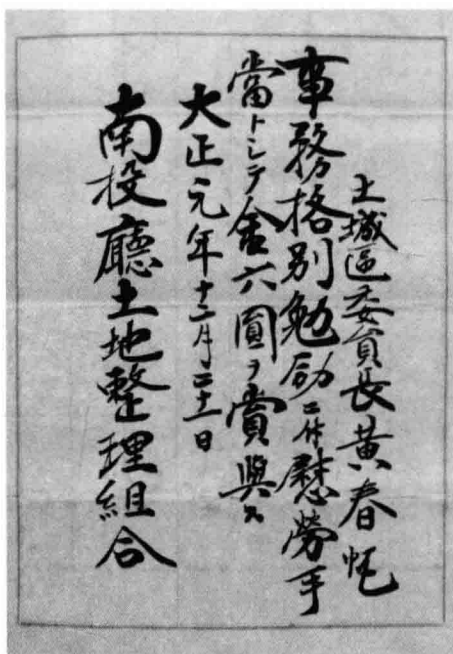 土城區委員長黃春帆
事務格別勉励ニ付慰勞手
當トシテ金六圓ヲ賞與ス
大正元年十二月二十一日
南投廳土地整理組合